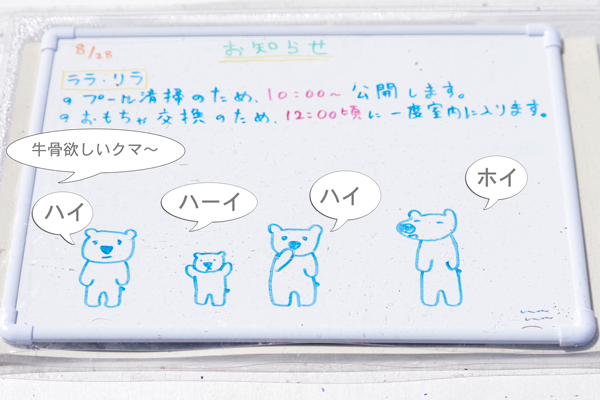 8/28
お知らせ
ララ・リラ
• プール清掃のため、10:00〜公開します。
• おもちゃ交換のため、12:00頃に一度室内に入ります。
牛骨欲しいクマ〜
ハイ
ハーイ
ハイ
ホイ